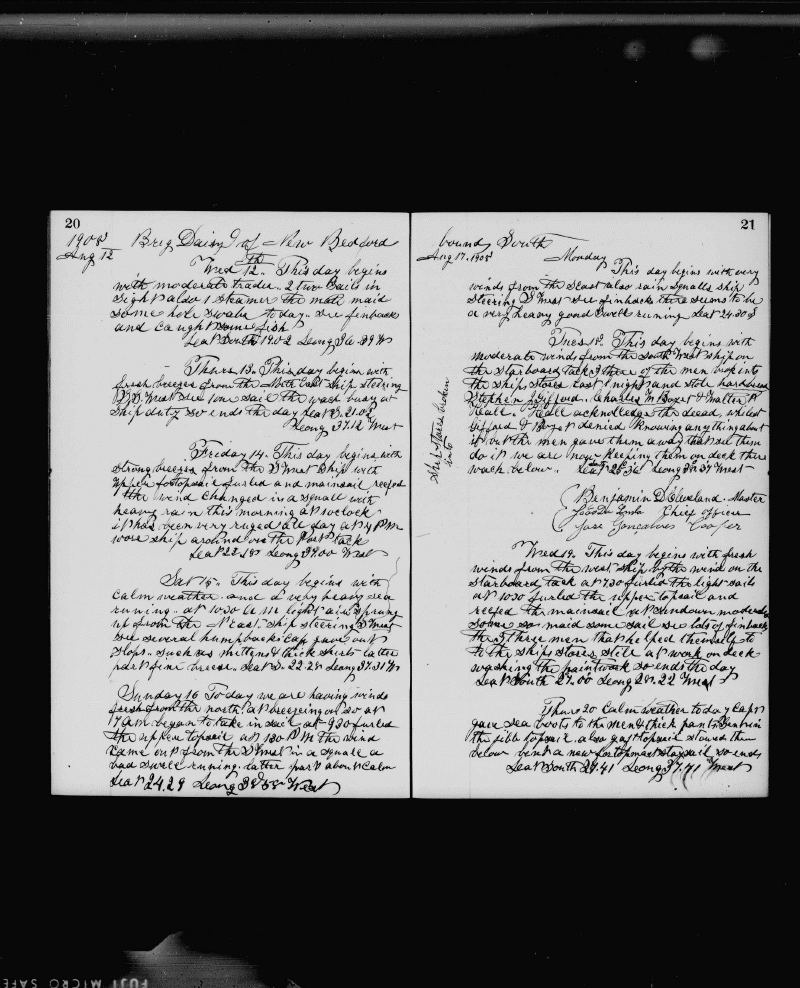 20
1908 Brig Daisy of New Bedford
Aug 12
Wed 12th. This day begins
with moderate trades. 2 two Sails in
sight also 1 steamer the mate maid
some hole swabs to day. see finbacks
and caught some fish
Leat South 19.02 Leong 36.39 W
Thurs 13. This day begin with
fresh breezes from the North East ship steering
S.S. West see one sail the wach busy at
ship duty so ends the day Leat S. 21.02
Leong 37.12 West
Friday 14. This day begins with
strong breezes from the S West ship with
upper fortopsail furled and mainsail reefed
the wind changed in a squall with
heavy rain this morning at oclock
it has been very ruged all day at 4 P M
wore ship around on the Port tack
Leat 22.18 Leong 39.00 West
Sat 15. This day begins with
calm weather and a very heavy sea
running. at 10.30 A M light airs sprung
up from the N East. Ship steering S West
see several humpbacks Cap gave out
slops. such as mittens & thick shirts latter
part fine breeze. Leat S. 22.28 Leong 37.31 W
Sunday 16 To day we are having winds
fresh from the north at breezing on so at
7 A m began to take in sail at 9.30 furled
the upper topsail at 1.30 P M the wind
came out from the S West in a squall a
bad swell running. latter part about calm
Leat 24.29 Leong 38.58 West
21
bound South
Aug 17. 1908
Monday
This day begins with very
winds from the S East also rain squalls ship
steering S West see finbacks there seems to be
a very heavy good swell runing Leat 24.30 S
Tues 18. This day begins with
moderate winds from the South West ship on
the starboard tack. 3 three of the men broke into
the ship stores last night and stole hardbread
Stephen J Gifford. Charles M Boget & Walter R
Hall. Hall acknolledge the deead, whilest
Gifford & Boget denied knowing anything about
it but the men gave them away that see them
do it we are now keeping them on deck there
wach below. Leat 25.36 Leong 37.37 West
Ship stores broken
into
Benjamin D Cleveland. Master
Chief officer
Jose Gonçalves Cooper
Wed 19. This day begins with fresh
winds from the west ship by the wind on the
starboard tack at 7.30 furled the light sails
at 10.30 furled the upper topsail and
reefed the mainsail at sundown moderate
some so maid some sail see lots of finbacks
the 3 three men that helped themselfs to
to the ship stores still at work on deck
washing the paintwork so ends the day
Leat South 27.00 Leong 38.22 West
Thurs 20 Calm weather to day Capt
gave sea boots to the men & thick pants
the jibb topsail. also gaftopsail stowed them
below bent a new fortopmast staysail so ends
Leat South 27.41 Leong 37.41 West
FUJI MICRO SAFE